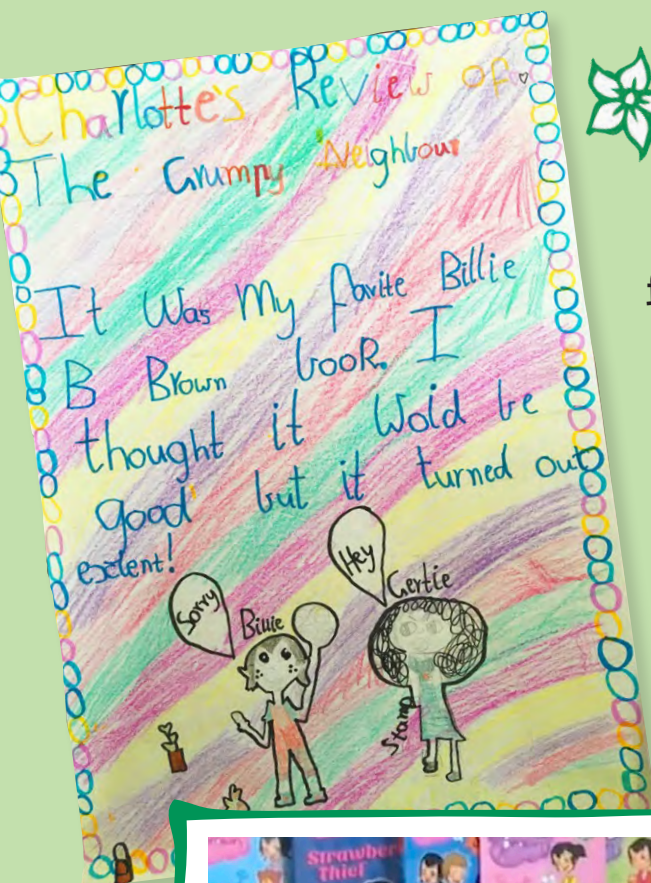 Charlotte's Review of
The Grumpy Neighbour
It Was My favite Billie
B Brown book. I
thought it Wold be
good but it turned out
exelent!
Hey
Sorry
Billie
Gertie
Stamp
Strawber
Thief